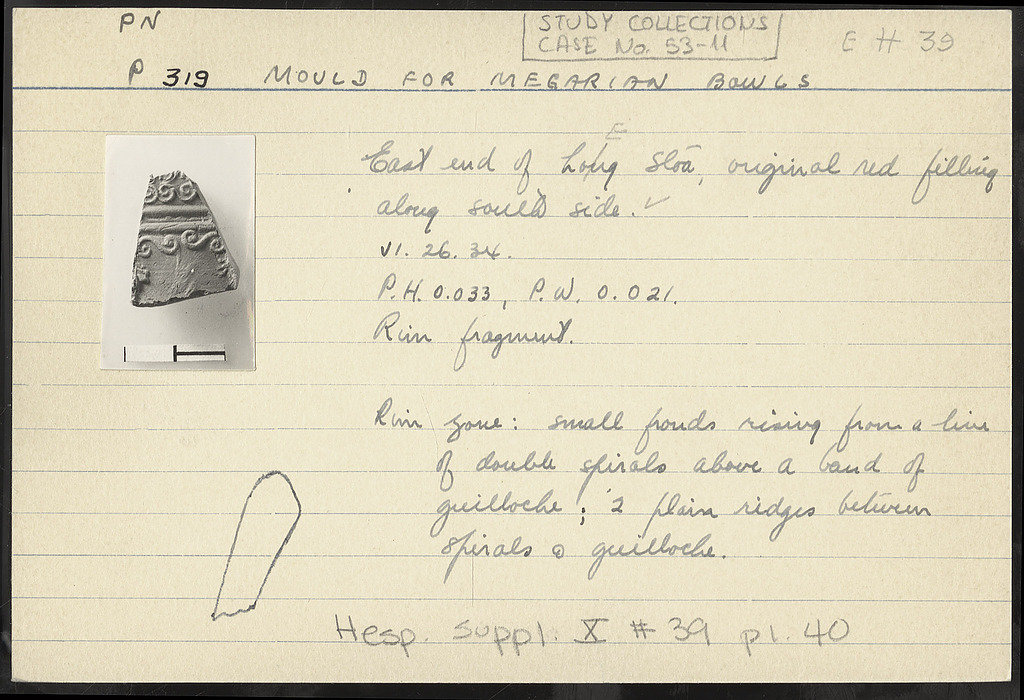 PN
STUDY COLLECTIONS
CASE No. 53-11
E # 39
P 319 MOULD FOR MEGARIAN BOWLS
E
East end of Long Stoa, original red filling
along south side. ✓
VI. 26. 34.
P.H. 0.033, P.W. 0.021.
Rim fragment.
Rim zone: small fronds rising from a line
of double spirals above a band of
guilloche; 2 plain ridges between
spirals & guilloche.
Hesp. Suppl. X # 39 pl. 40